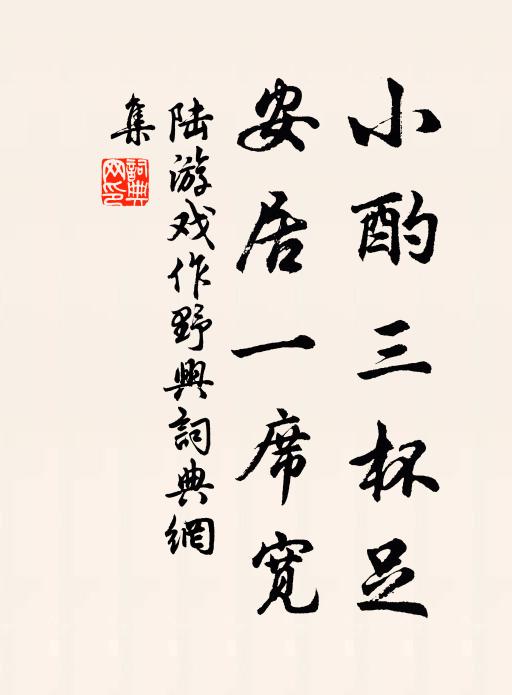 小酌三杯足
安居一席寬
陆游戏作野興詞典網
集
詞典
网印